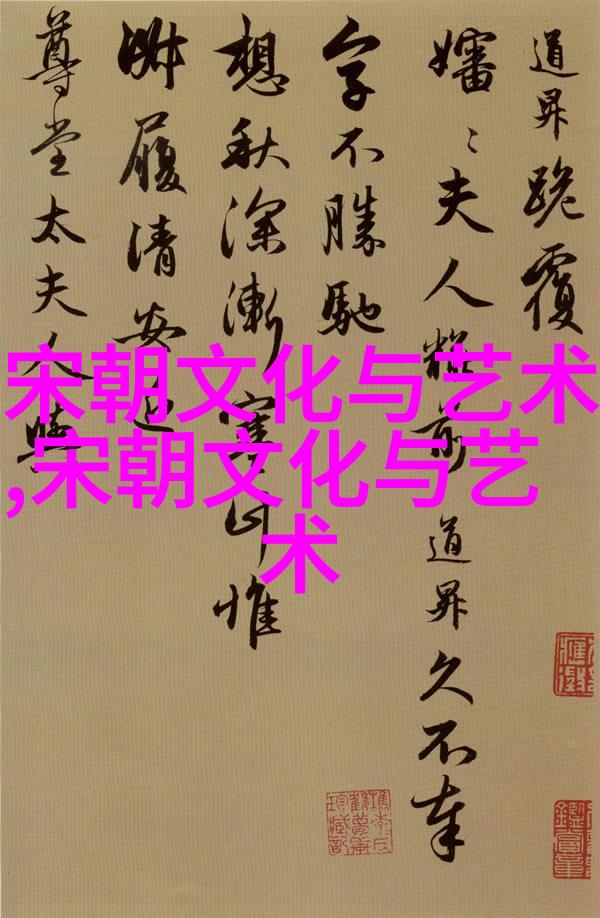 道昇跪覆
嬸〻夫人粧前道昇久不奉
字不勝馳
想秋深漸寒計惟
淑履清安近
尊堂太夫人
宋朝文化与艺术
,宋朝文化与艺
术